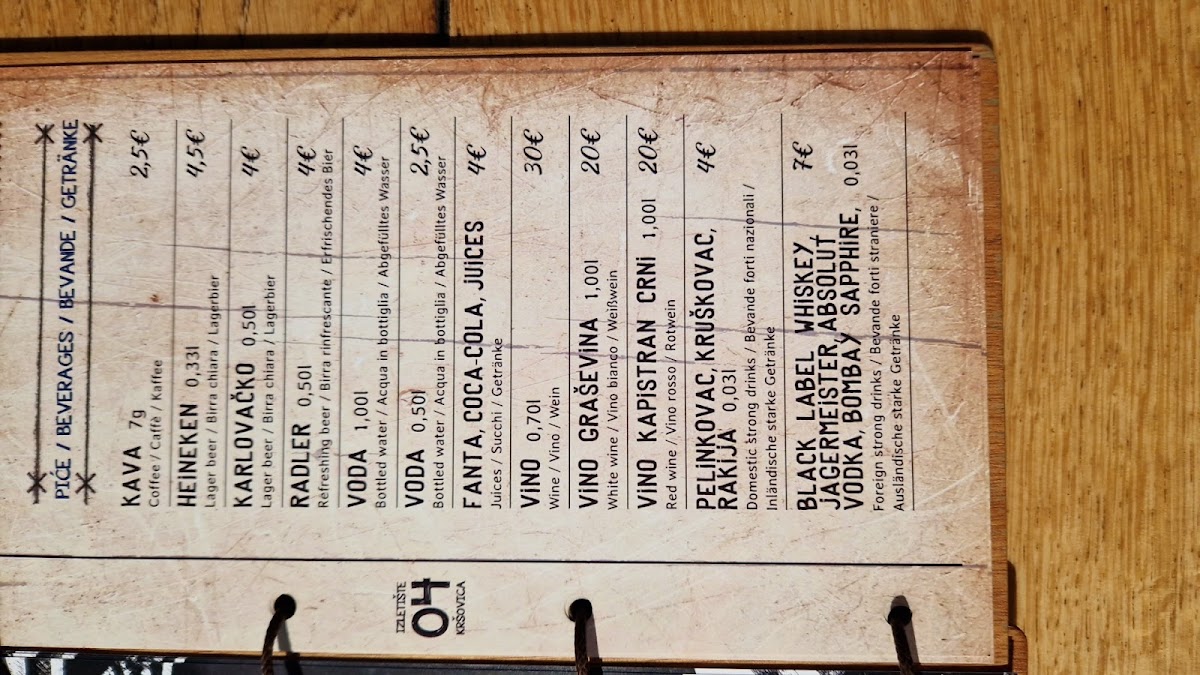 PIĆE / BEVERAGES / BEVANDE / GETRÄNKE
KAVA 7g 2,5€
Coffee / Caffé / Kaffee
HEINEKEN 0,33l 4,5€
Lager beer / Birra chiara / Lagerbier
KARLOVAČKO 0,50l 4€
Lager beer / Birra chiara / Lagerbier
RADLER 0,50l 4€
Refreshing beer / Birra rinfrescante / Erfrischendes Bier
VODA 1,00l 4€
Bottled water / Acqua in bottiglia / Abgefülltes Wasser
VODA 0,50l 2,5€
Bottled water / Acqua in bottiglia / Abgefülltes Wasser
FANTA, COCA-COLA, JUICES 4€
Juices / Succhi / Getränke
VINO 0,70l 30€
Wine / Vino / Wein
VINO GRAŠEVINA 1,00l 20€
White wine / Vino bianco / Weißwein
VINO KAPISTRAN CRNI 1,00l 20€
Red wine / Vino rosso / Rotwein
PELINKOVAC, KRUŠKOVAC, 4€
RAKIJA 0,03l
Domestic strong drinks / Bevande forti nazionali /
Inländische starke Getränke
BLACK LABEL WHISKEY 7€
JAGERMEISTER, ABSOLUT
VODKA, BOMBAY SAPPHIRE, 0,03l
Foreign strong drinks / Bevande forti straniere /
Ausländische starke Getränke
IZLETIŠTE
04
KRŠOVICA